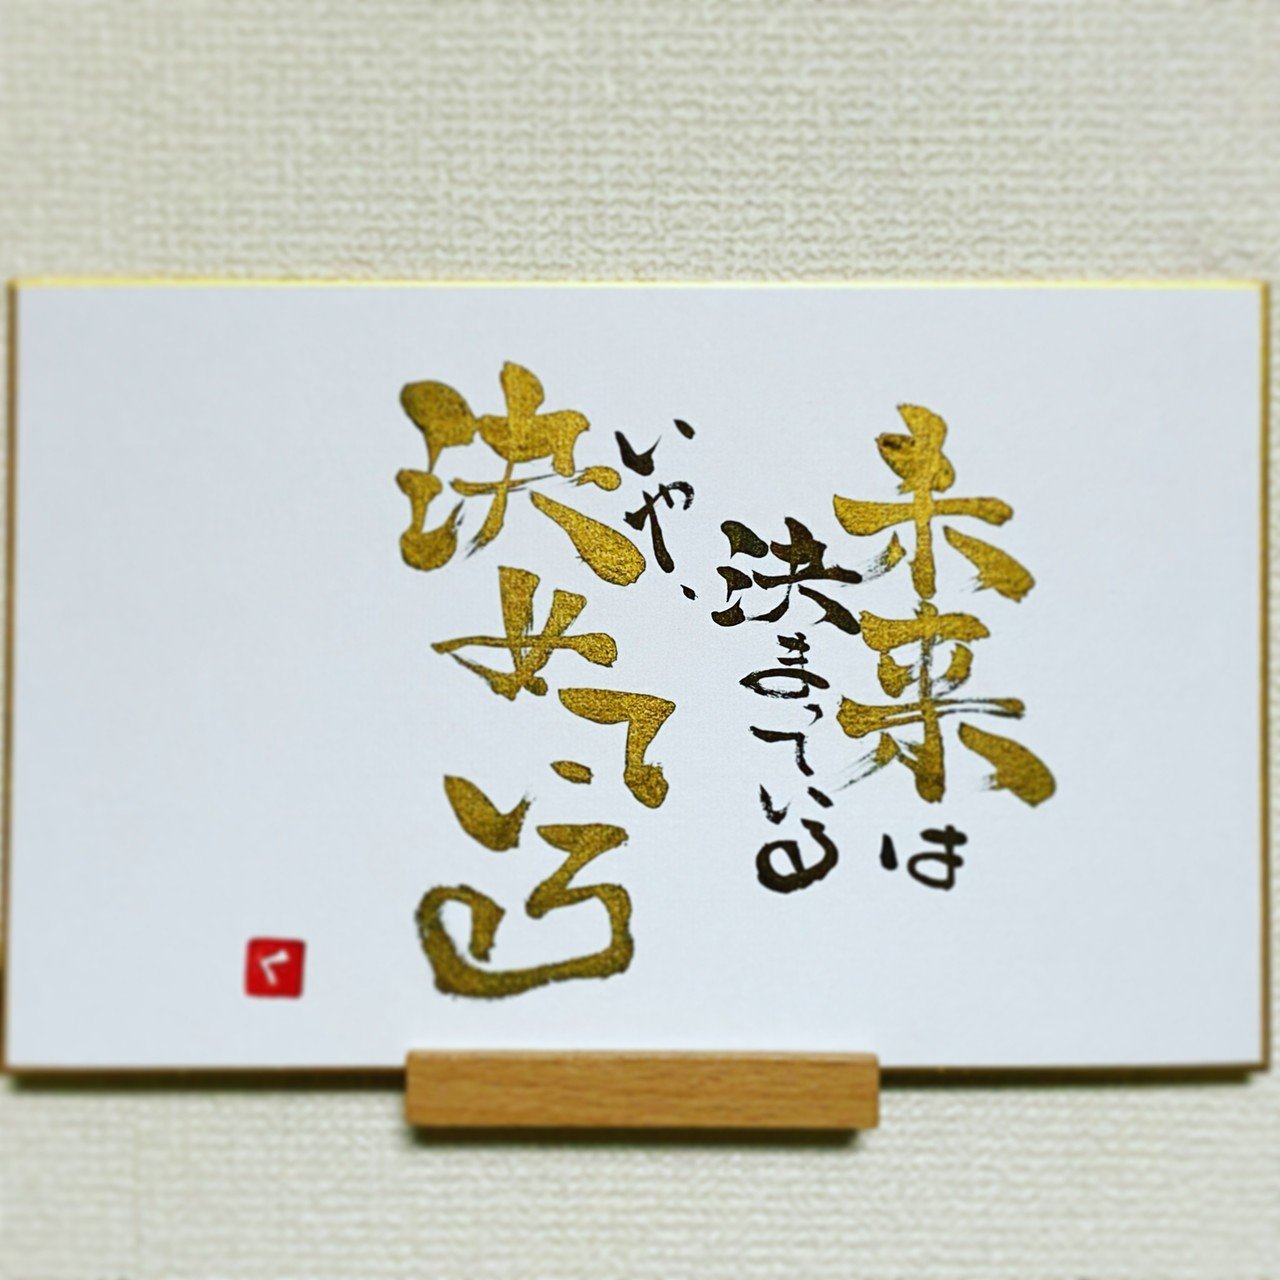 未来は
決まっている
いや、
決めている
く